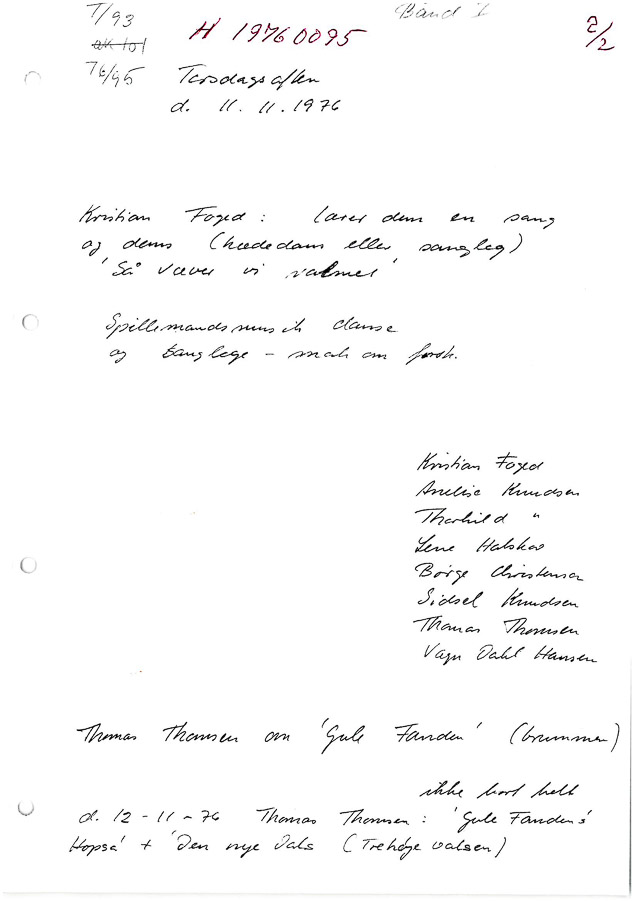 T/93
Bånd 1
2/2
ak 101
H 19760095
76/95
Torsdag aften
d. 11.11.1976
Kristian Foged : lærer dem en sang
og dans (kædedans eller sangleg)
'Så væver vi vadmel'
Spillemandsmusik danse
og sanglege - snak om forsk.
Kristian Foged
Anelise Knudsen
Thorhild "
Lene Halskov
Børge Christensen
Sidsel Knudsen
Thomas Thomsen
Vagn Dahl Hansen
Thomas Thomsen om 'Gule Fanden' (brummen)
ikke helt
d. 12-11-76 Thomas Thomsen : 'Gule Fandens
Hopsa' + 'Den nye Vals (Trehøje valsen)